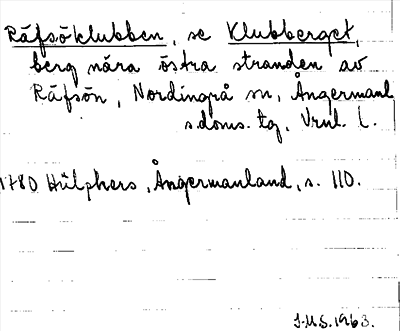 Räfsöklubben, se Klubberget,
berg nära östra stranden av
Räfsön, Nordingrå sn, Ångermanl.
s.doms. tg, Vrnl. l.
1780 Hülphers, Ångermanland, s. 110.
J.M.S. 1963.